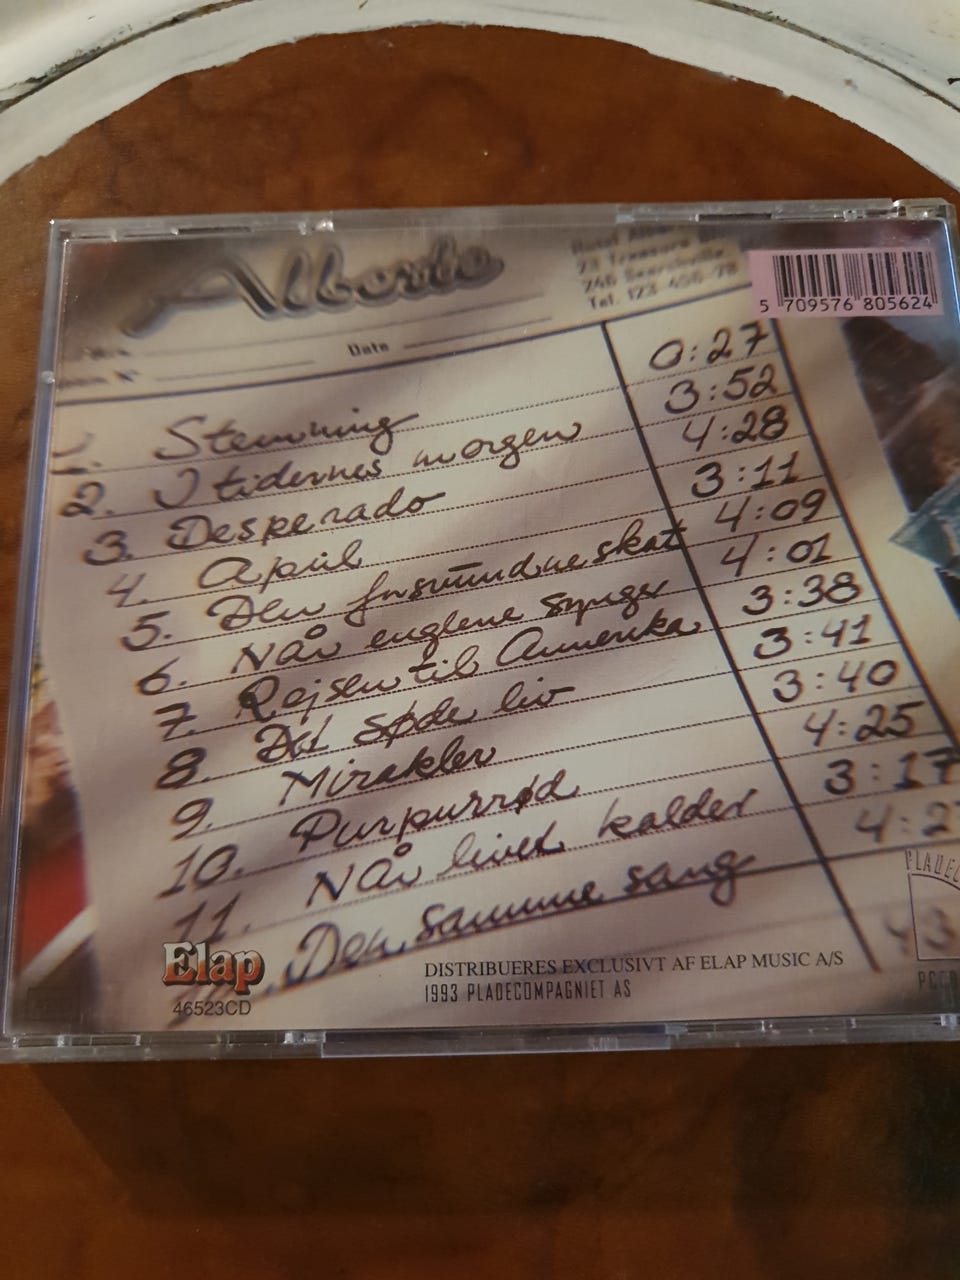 Alberto
23 Treasure
246
Tel. 123 456 78
5 709576 805624
Date
N°
1. Stemning 0:27
2. I tidernes morgen 3:52
3. Desperado 4:28
4. April 3:11
5. Den forsvundne skat 4:09
6. Når englene synger 4:01
7. Rejsen til Amerika 3:38
8. Det søde liv 3:41
9. Mirakler 3:40
10. Purpurrød 4:25
11. Når livet kalder 3:17
Den samme sang
Elap
46523CD
DISTRIBUERES EXCLUSIVT AF ELAP MUSIC A/S
1993 PLADECOMPAGNIET AS